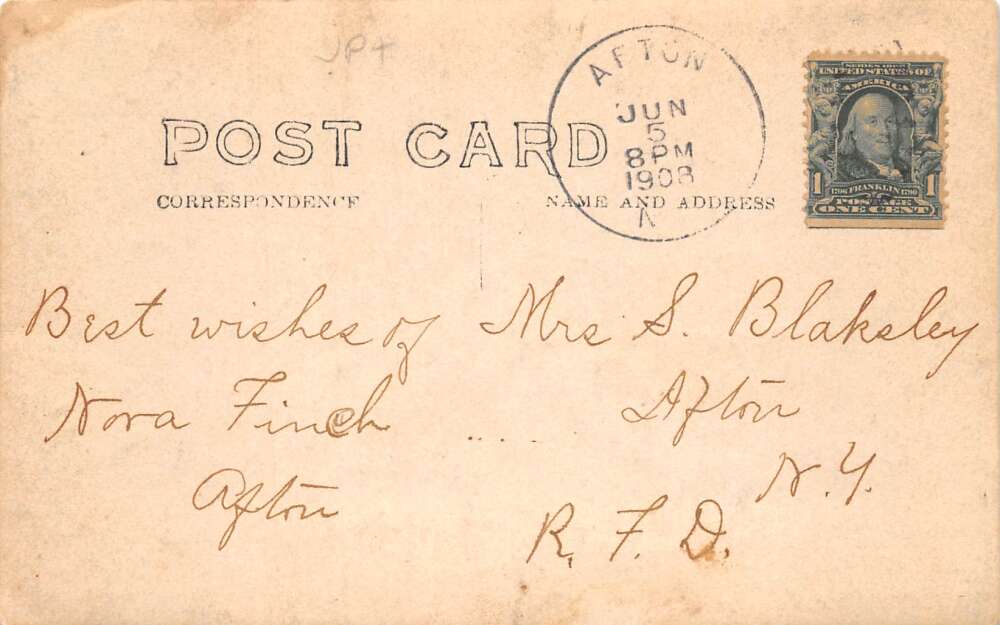 JP+
POST CARD
CORRESPONDENCE
NAME AND ADDRESS
AFTON
JUN
5
8 PM
1908
N
SERIES 1902
UNITED STATES OF
AMERICA
1 1706 FRANKLIN 1790 1
POSTAGE
ONE CENT
Best wishes of
Nora Finch
Afton
Mrs S. Blaksley
Afton
N.Y.
R. F. D.